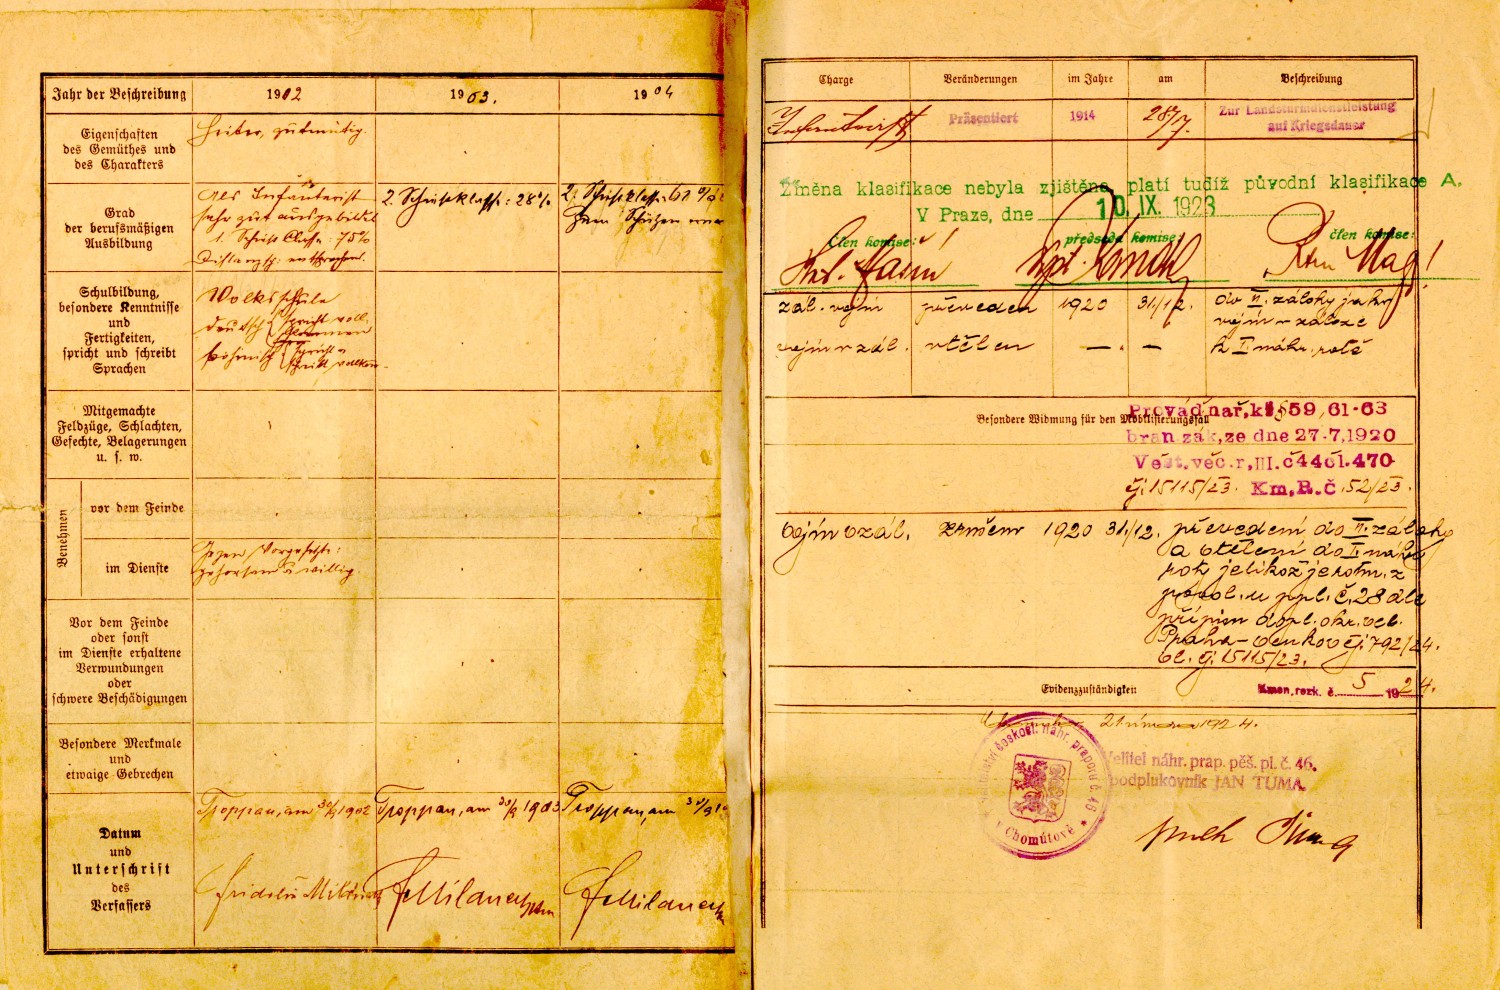 Jahr der Beschreibung 1902 1903. 1904
Eigenschaften
des Gemüthes und
des Charakters
heiter, gutmütig.
Grad
der berufsmäßigen
Ausbildung
Als Infanterist
sehr gut ausgebildet
1. Schieß Classe: 75%
Distanzsch: entsprochen.
2. Schießklasse: 28%
2. Schießklasse 60%
zum Schützen
Schulbildung,
besondere Kenntnisse
und
Fertigkeiten,
spricht und schreibt
Sprachen
Volksschule
deutsch spricht voll-
kommen
böhmisch spricht u
schreibt vollkom.
Mitgemachte
Feldzüge, Schlachten,
Gefechte, Belagerungen
u. s. w.
Benehmen
vor dem Feinde
im Dienste
Gegen Vorgesetzte:
gehorsam u willig.
Vor dem Feinde
oder sonst
im Dienste erhaltene
Verwundungen
oder
schwere Beschädigungen
Besondere Merkmale
und
etwaige Gebrechen
Datum
und
Unterschrift
des
Verfassers
Troppau, am 1902
Troppau, am 1903
Troppau, am
Charge Veränderungen im Jahre am Beschreibung
Infanterist Präsentiert 1914 28/7. Zur Landsturmdienstleistung
auf Kriegsdauer
Změna klasifikace nebyla zjištěna, platí tudíž původní klasifikace A.
V Praze, dne 10. IX. 1923
člen komise: předseda komise: člen komise:
zál. vojín převeden 1920 31/12. do II. zálohy jakо
vojín v záloze
vojín v zál. vtělen — . — k I náhr. rotě
Besondere Widmung für den Mobilisierungsfall
Prováď nař, k § 59, 61-63
bran zák, ze dne 27-7, 1920
Věst. věc. r, III. č 44 čl. 470
čj. 15115/23. Km. R. č. 52/23.
vojín v zál. zrušeno 1920 31./12. převedení do II. zálohy
a vtělení do I náhr.
rot jelikož jerotm. z
povol. u ppl. č. 28 dle
přípisu dopl. okr. vel.
Praha-venkov čj. 792/24.
čj. 15115/23.
Evidenzzuständigkeiten
Kmen. rezk. č. 5 1924.
února 1924.
českosl. náhr. praporu č. 46
v Chomútově
Velitel náhr. prap. pěš. pl. č. 46.
podplukovník JAN TUMA.